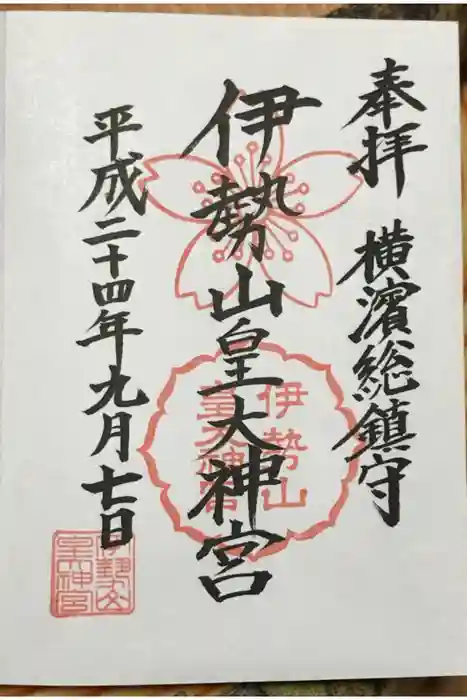 奉拝 横濱総鎮守
伊勢山皇大神宮
平成二十四年九月七日
伊勢山
皇大神宮
伊勢山
皇大神宮